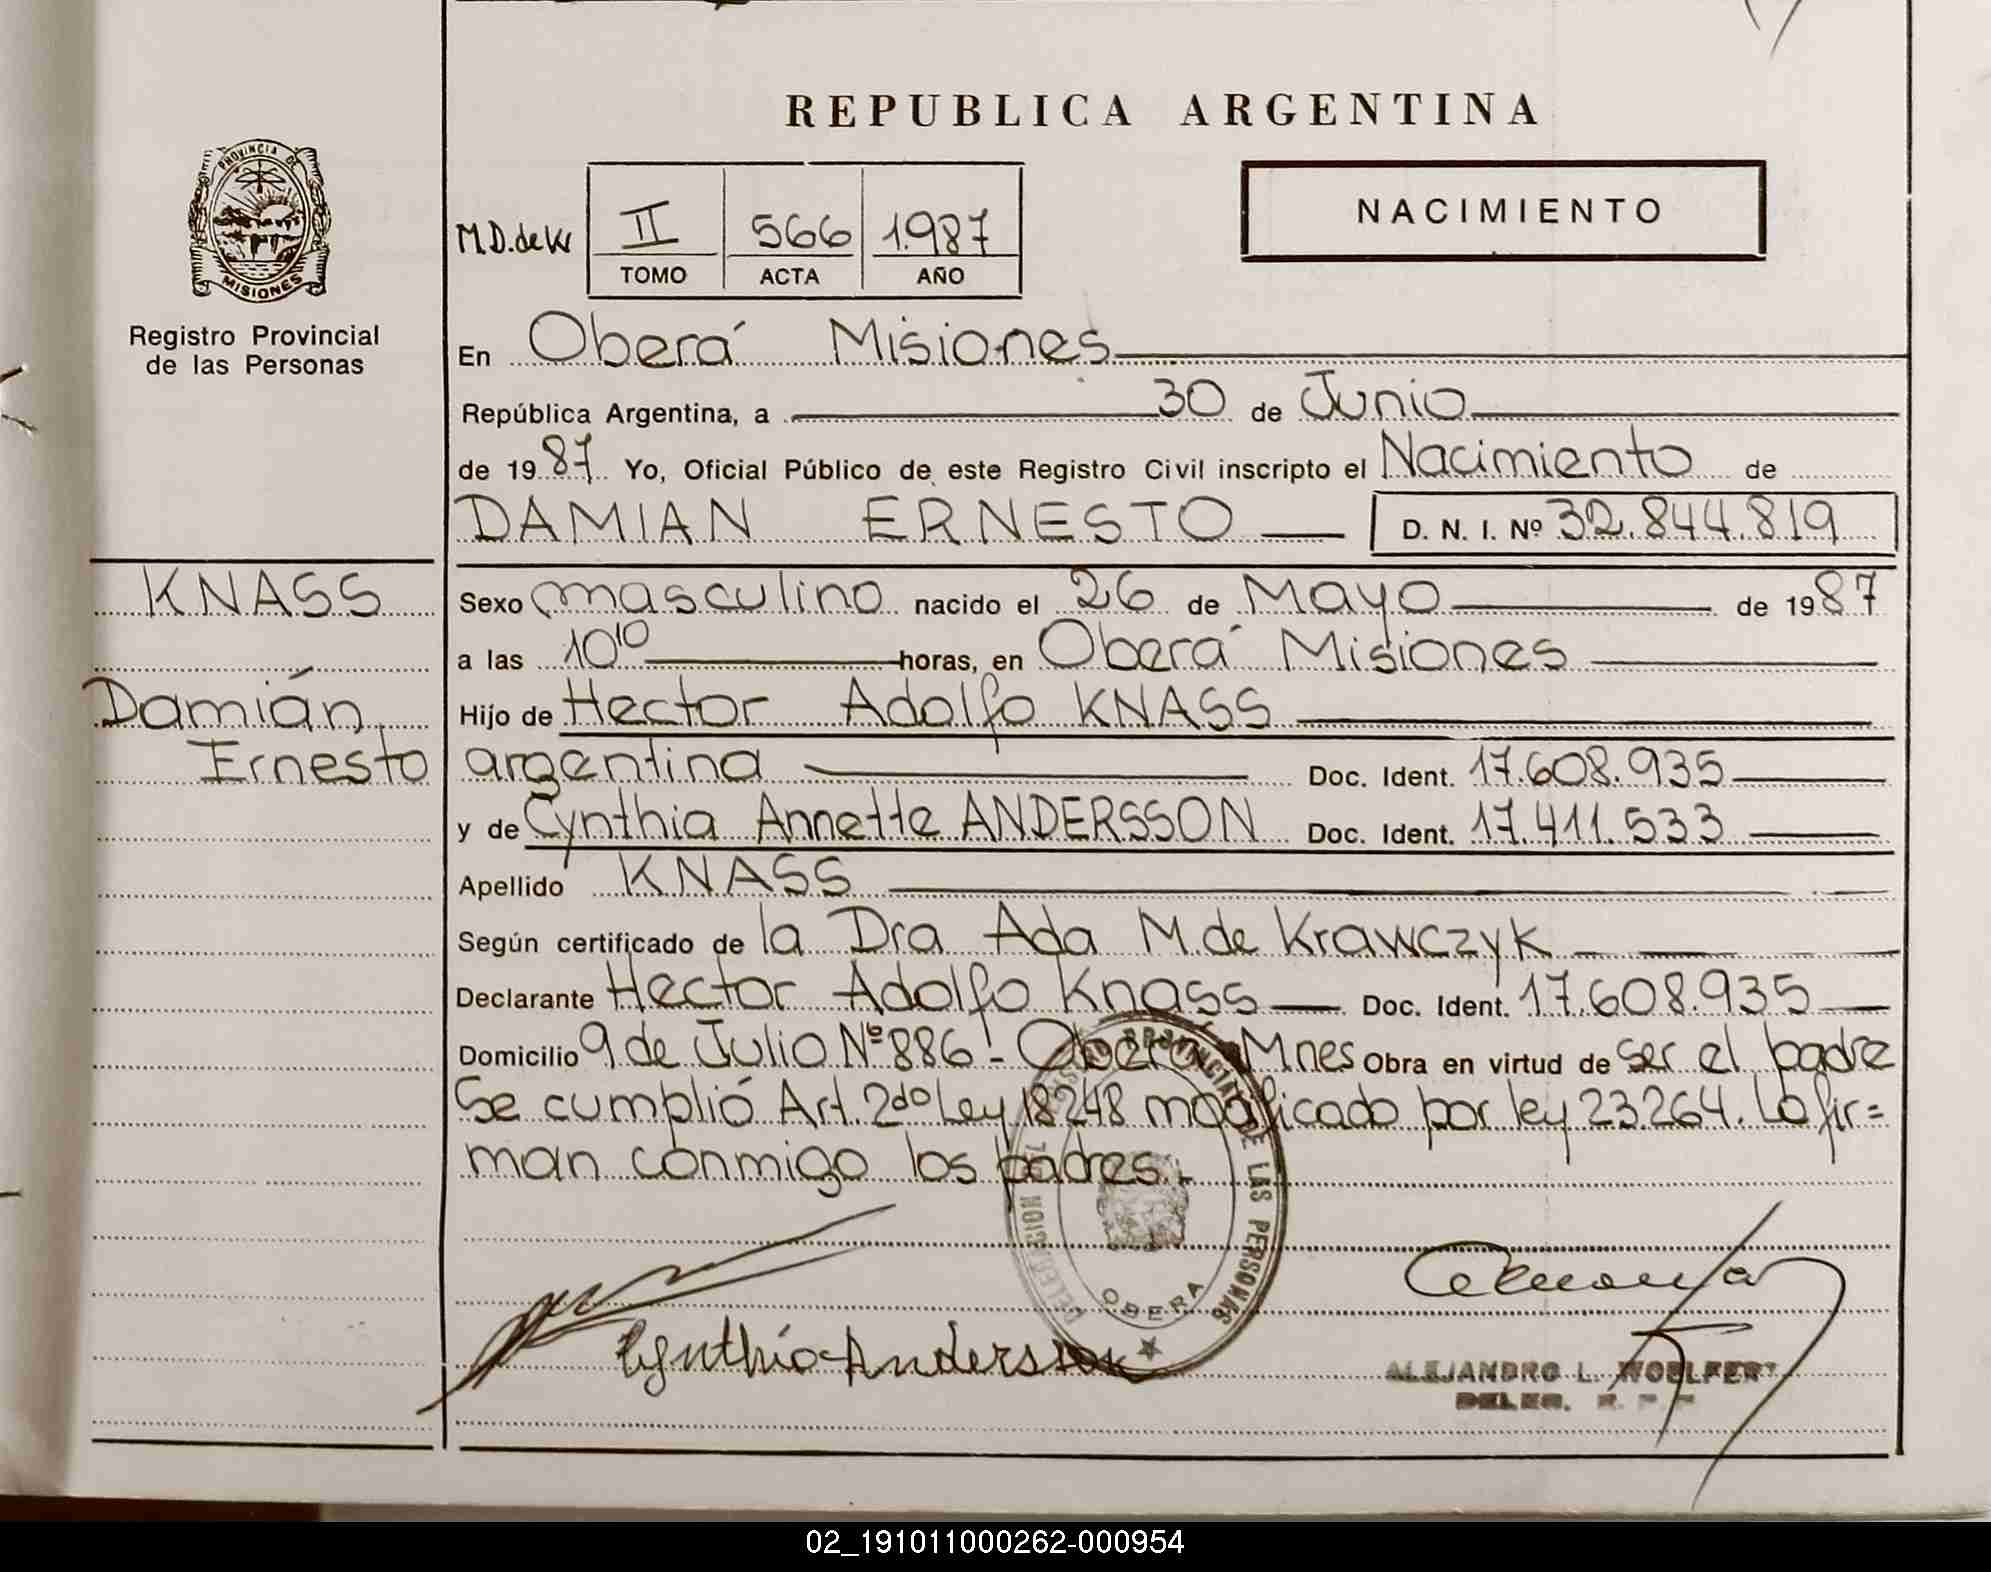 REPUBLICA ARGENTINA
PROVINCIA DE
MISIONES
Registro Provincial
de las Personas
M.D. de Kr
II 566 1.987
TOMO ACTA AÑO
NACIMIENTO
En Oberá Misiones
República Argentina, a 30 de Junio
de 1987 Yo, Oficial Público de este Registro Civil inscripto el Nacimiento de
DAMIAN ERNESTO D. N. I. Nº 32.844.819
KNASS
Damián
Ernesto
Sexo masculino nacido el 26 de Mayo de 1987
a las 10¹⁰ horas, en Oberá Misiones
Hijo de Hector Adolfo KNASS
argentina Doc. Ident. 17.608.935
y de Cynthia Annette ANDERSSON Doc. Ident. 17.411.533
Apellido KNASS
Según certificado de la Dra Ada M. de Krawczyk
Declarante Hector Adolfo Knass Doc. Ident. 17.608.935
Domicilio 9 de Julio Nº 886 - Oberá Mnes Obra en virtud de ser el padre
Se cumplió Art. 2do Ley 18248 modificado por ley 23.264. Lo fir=
man conmigo los padres.
PROVINCIAL DE LAS PERSONAS
OBERA
Cynthia Andersson
ALEJANDRO L. WOELFERT
02_191011000262-000954